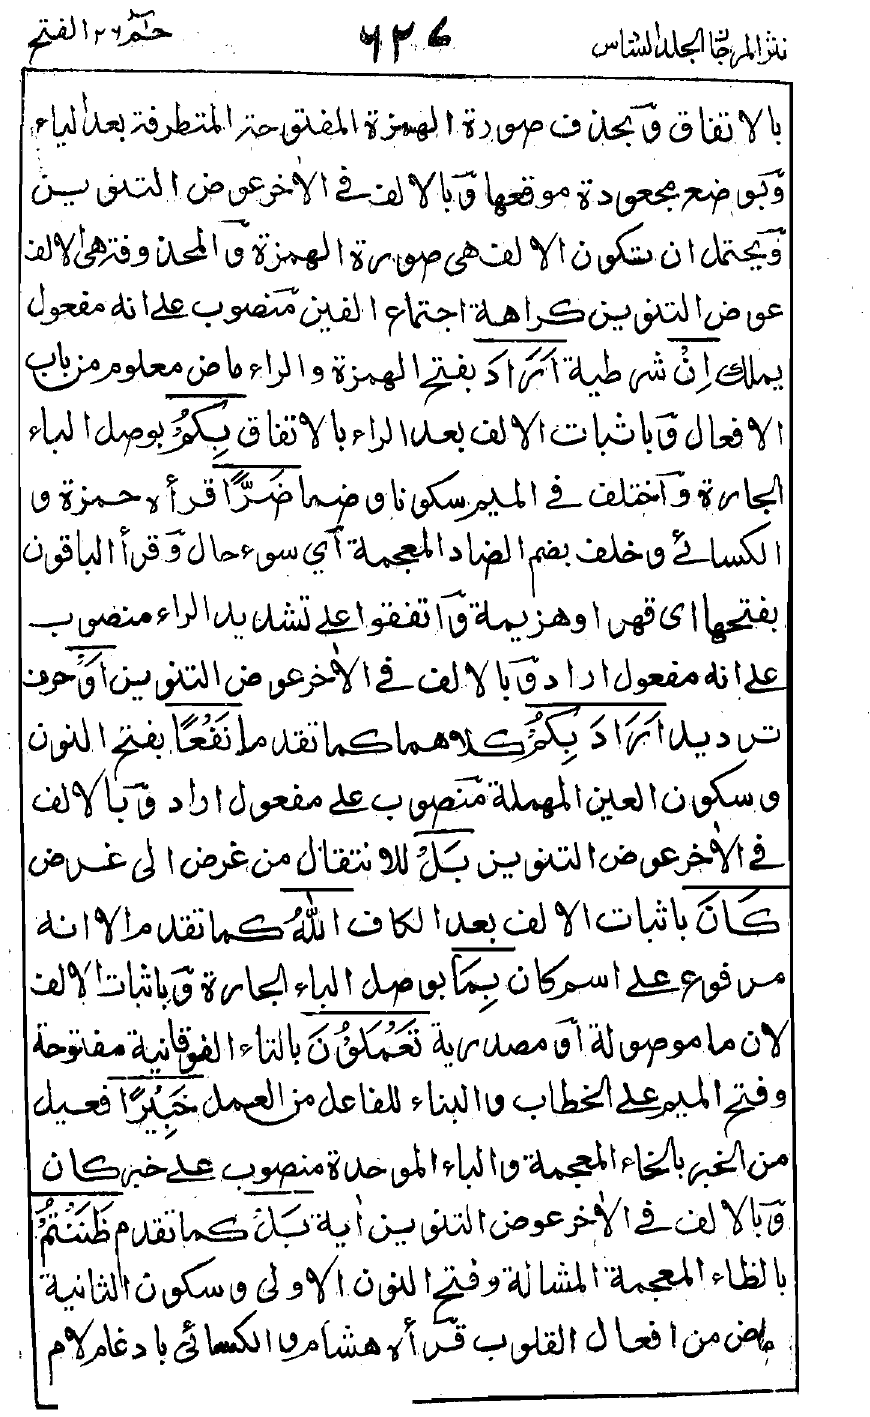 نثر المرجان الجلد السادس ٦٢٧ حٰم ٢٦ الفتح
بالاتفاق وَبحذف صورة الهمزة المفتوحة المتطرفة بعد الياء
وَبوضع مجعودة موقعها وَبالالف في الاٰخر عوض التنوين
وَيحتمل ان تكون الالف هي صورة الهمزة وَالمحذوفة هي الالف
عوض التنوين كراهة اجتماع الفين مَنصوب على انه مفعول
يملك اِنْ شرطية اَرَادَ بفتح الهمزة والراء ماض معلوم من باب
الافعال وَباثبات الالف بعد الراء بالاتفاق بِكُمْ بوصل الباء
الجارة وَاختلف في الميم سكونا وضما ضَرًّا قرأه حمزة و
الكسائي وخلف بضم الضاد المعجمة اَي سوء حال وَقرأ الباقون
بفتحها اى قهرا وهزيمة وَاتفقوا على تشديد الراء منصوب
على انه مفعول اراد وَبالالف في الاٰخر عوض التنوين اَوْ حرف
ترديد اَرَادَ بِكُمْ كلاهما كما تقدم ما نَفْعًا بفتح النون
وسكون العين المهملة مَنصوب على مفعول اراد وَبالالف
في الاٰخر عوض التنوين بَلْ للانتقال من غرض الى غرض
كَانَ باثبات الالف بعد الكاف اللّٰهُ كما تقدم الا انه
مرفوع على اسم كان بِمَا بوصل الباء الجارة وَباثبات الالف
لان ما موصولة اَو مصدرية تَعْمَلُوْنَ بالتاء الفوقانية مفتوحة
وفتح الميم على الخطاب والبناء للفاعل من العمل خَبِيْرًا فعيل
من الخبر بالخاء المعجمة والباء الموحدة منصوب على خبر كان
وَبالالف في الاٰخر عوض التنوين اٰية بَلْ كما تقدم ظَنَنْتُمْ
بالظاء المعجمة المشالة وفتح النون الاولى وسكون الثانية
ماض من افعال القلوب قَرأه هشام والكسائى بادغام لام